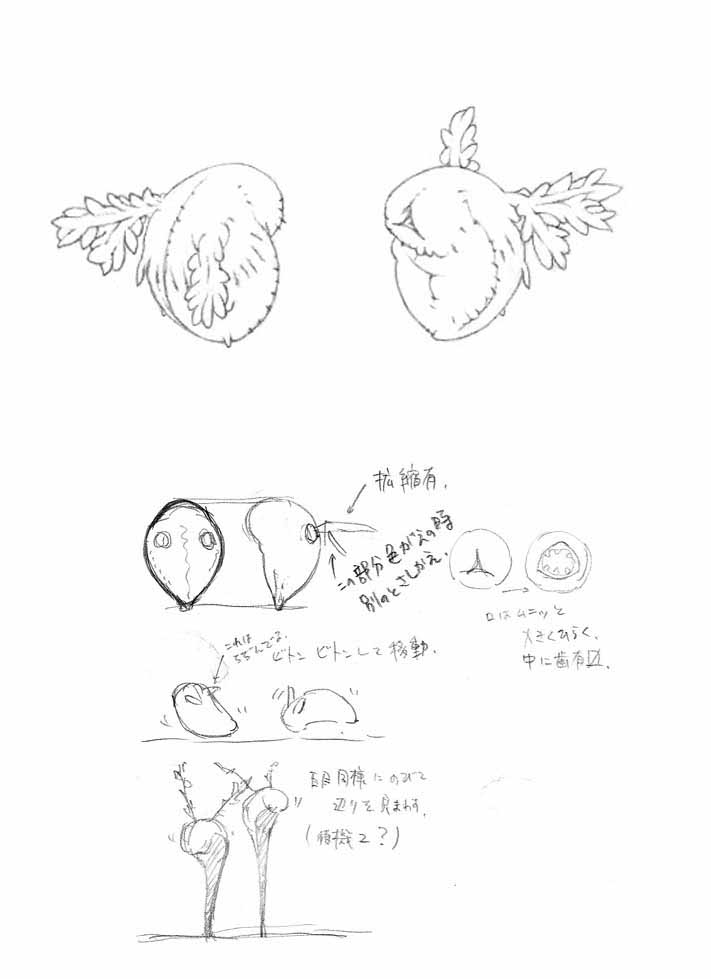 拡縮有。
この部分色がえの時
別のとさしかえ。
口はムニッと
大きくひらく。
中に歯有
これは
ちぢんでる。
ビトン ビトンして移動。
同様にのびて
辺りを見まわす。
(待機2?)